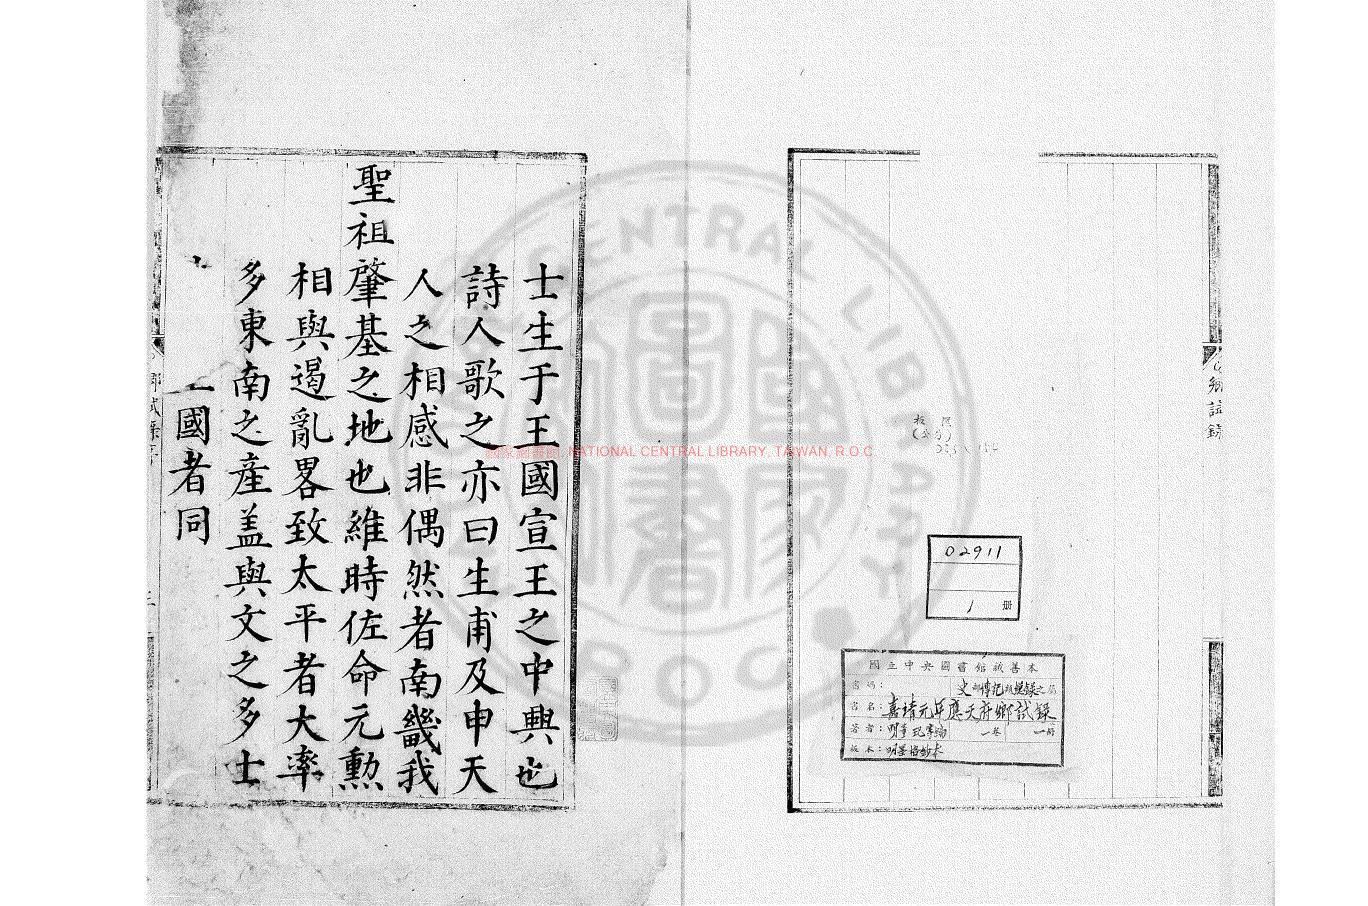 鄉試錄
02911
1 冊
國立中央圖書館藏善本
史部傳記類總錄之屬
書名：嘉靖元年應天府鄉試錄
著者：明董玘等編 一卷 一冊
版本：明墨格鈔本
士生于王國宣王之中興也
詩人歌之亦曰生甫及申天
人之相感非偶然者南畿我
聖祖肇基之地也維時佐命元勳
相與遏亂畧致太平者大率
多東南之產盖與文之多士
國者同
鄉試錄序
國家圖書館, NATIONAL CENTRAL LIBRARY, TAIWAN, R.O.C.